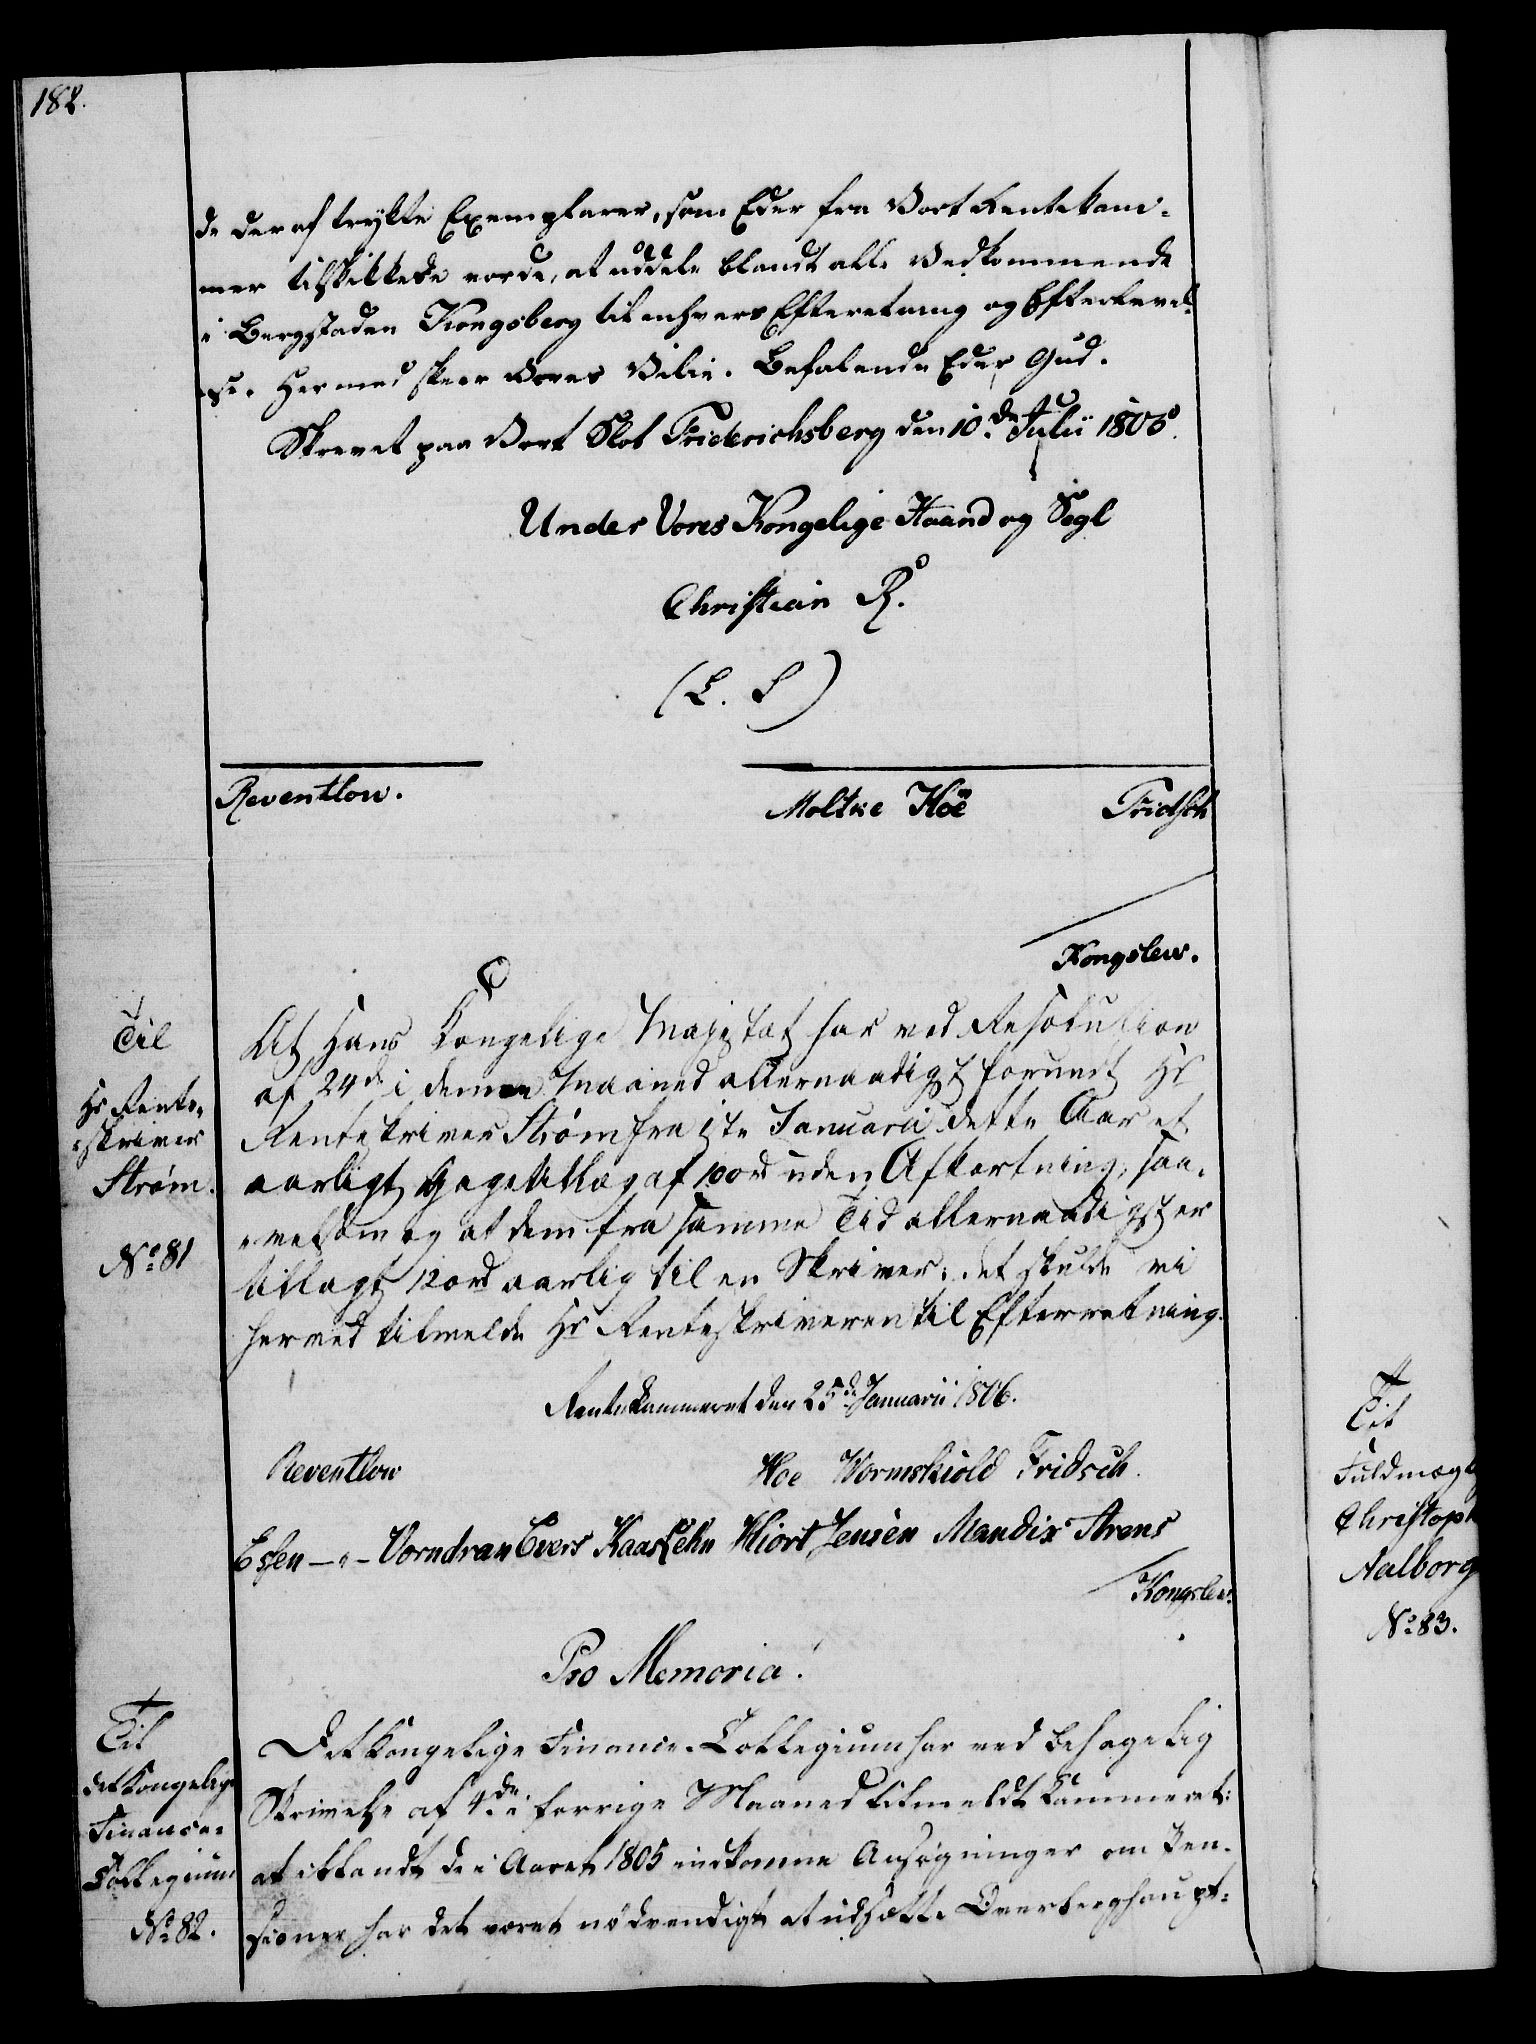 182.
de deraf trykte Exemplarer, som Eder fra Vort Rentekam-
mer tilskikkede vorde, at uddele blandt alle Vedkommende
i Bergstaden Kongsberg til enhvers Efterretning og Efterlevel-
se. Hermed skeer Vores Villie. Befalende Eder Gud.
Skrevet paa Vort Slot Friderichsberg den 10de Julii 1805.
Under Vores Kongelige Haand og Segl
Christian R.
(L. S)
Reventlow.
Moltke Hoë Fridsch
Kongslew.
Til
Hr Rente-
skriver
Strøm.
No 81
At Hans Kongelige Majestæt har ved Resolution
af 24de i denne Maaned allernaadigst forundt Hr
Renteskriver Strøm fra 1ste Januarii dette Aar et
aarligt Gagetillæg af 100rd uden Afkortning, saa-
velsom og at dem fra samme Tid allernaadigst er
tillagt 120rd aarlig til en Skriver: det skulde vi
herved tilmelde Hr Renteskriveren til Efterretning.
Rentekammeret den 25de Januarii 1806.
Reventlow
Hoe Wormskiold Fridsch.
Essen -"- Vorndran Evers Kaas Lehn Hiort Jensen Mandix Arens
Kongslew.
Pro Memoria!
Til
det Kongelige
Finance-
Collegium
No 82.
Det Kongelige Finance-Collegium har ved behagelig
Skrivelse af 4de i forrige Maaned tilmeldt Kammeret:
at iblandt de i Aaret 1805 indkomne Ansøgninger om Pen-
sioner har det været nødvendigt at udsætte Overberghaupt-
Til
Fuldmægt
Christoph
Aalborg
No 83.